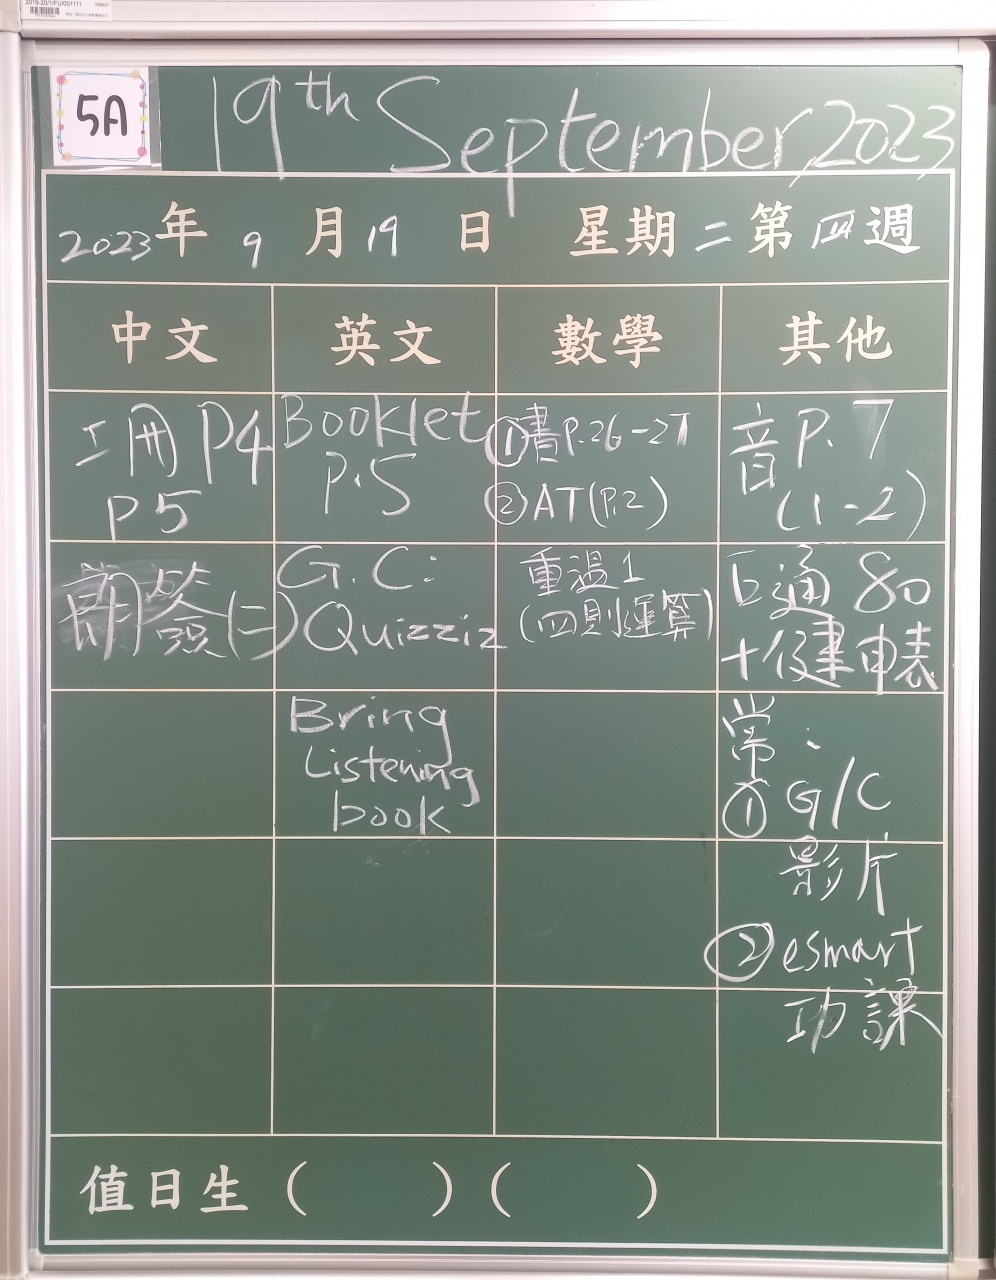 2019-20/1/FU/001111
5A
19th September, 2023
2023年 9月19日 星期二第四週
中文 英文 數學 其他
工冊 P4
P5
Booklet
P.5
①書P.26-27
②AT(P.2)
音P.7
(1-2)
簽(二)
G.C:
Quizziz
重溫1
(四則運算)
通 80
+健 申表
Bring
Listening
book
常:
① G/C
影片
② esmart
功課
值日生( )( )